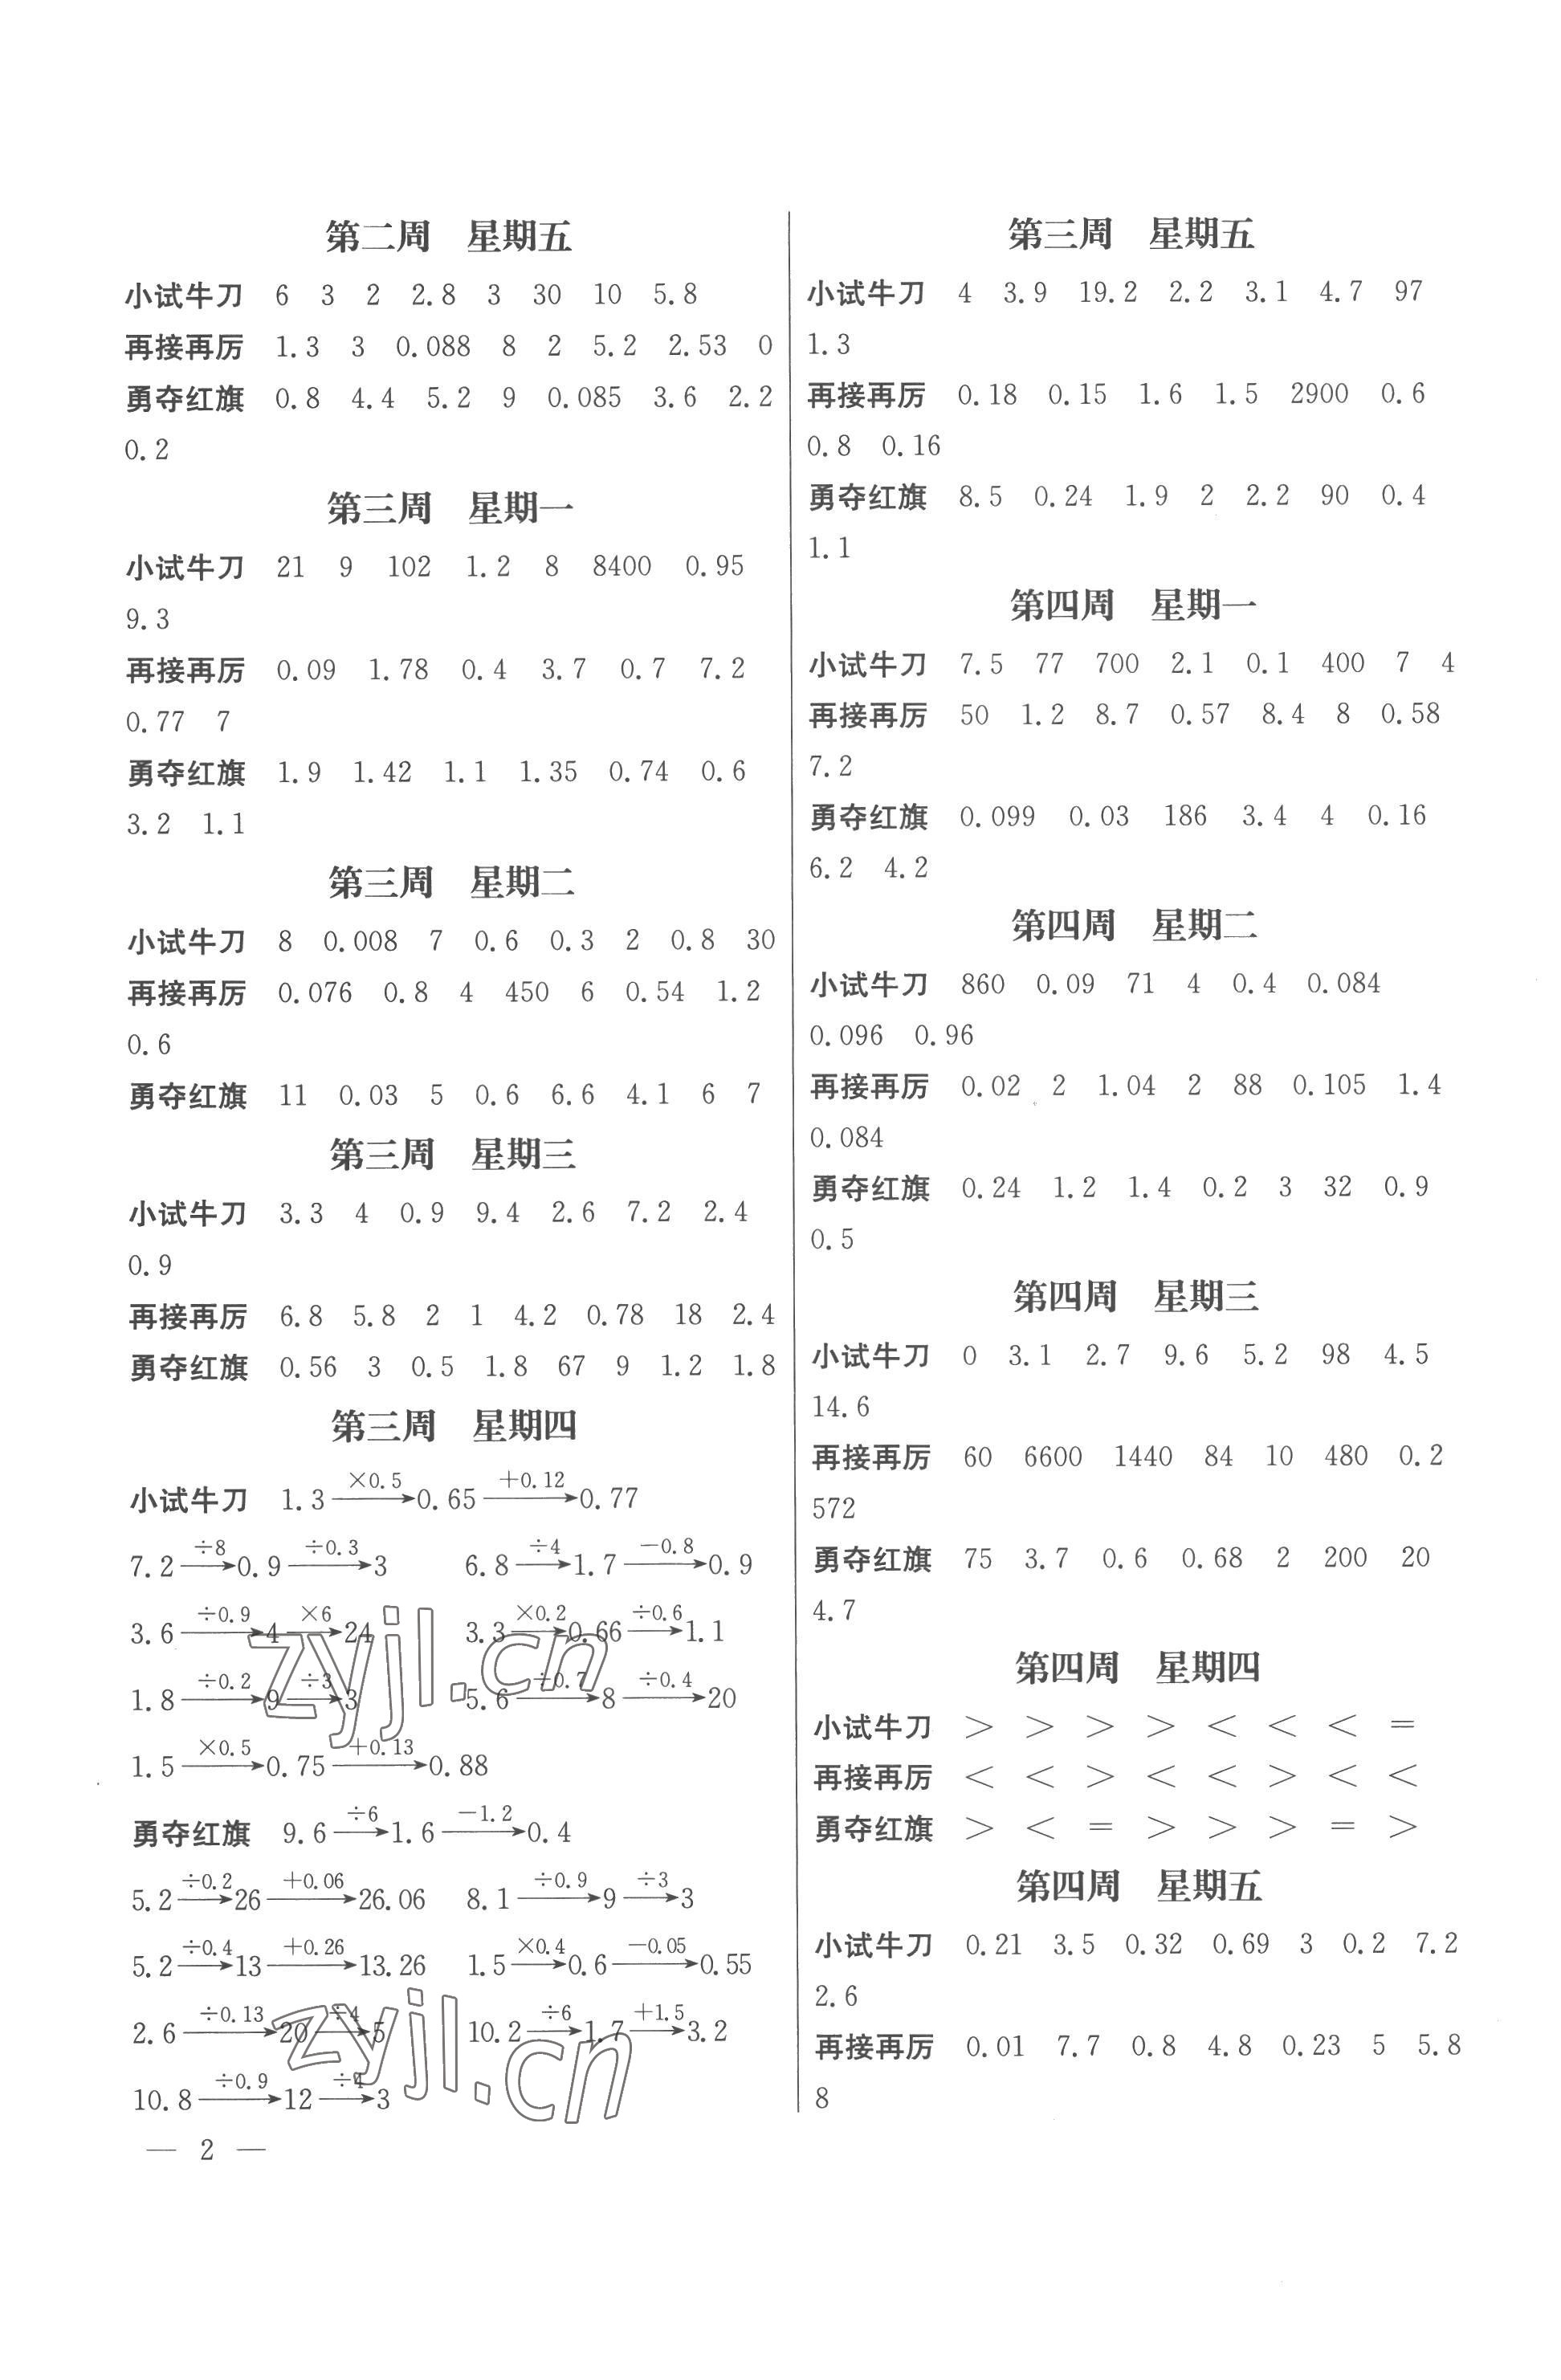 第二周 星期五
小试牛刀 6 3 2 2.8 3 30 10 5.8
再接再厉 1.3 3 0.088 8 2 5.2 2.53 0
勇夺红旗 0.8 4.4 5.2 9 0.085 3.6 2.2
0.2
第三周 星期一
小试牛刀 21 9 102 1.2 8 8400 0.95
9.3
再接再厉 0.09 1.78 0.4 3.7 0.7 7.2
0.77 7
勇夺红旗 1.9 1.42 1.1 1.35 0.74 0.6
3.2 1.1
第三周 星期二
小试牛刀 8 0.008 7 0.6 0.3 2 0.8 30
再接再厉 0.076 0.8 4 450 6 0.54 1.2
0.6
勇夺红旗 11 0.03 5 0.6 6.6 4.1 6 7
第三周 星期三
小试牛刀 3.3 4 0.9 9.4 2.6 7.2 2.4
0.9
再接再厉 6.8 5.8 2 1 4.2 0.78 18 2.4
勇夺红旗 0.56 3 0.5 1.8 67 9 1.2 1.8
第三周 星期四
小试牛刀 1.3 —×0.5→ 0.65 —+0.12→ 0.77
7.2 —÷8→ 0.9 —÷0.3→ 3 6.8 —÷4→ 1.7 —−0.8→ 0.9
3.6 —÷0.9→ 4 —×6→ 24 3.3 —×0.2→ 0.66 —÷0.6→ 1.1
1.8 —÷0.2→ 9 —÷3→ 3 5.6 —÷0.7→ 8 —÷0.4→ 20
1.5 —×0.5→ 0.75 —+0.13→ 0.88
勇夺红旗 9.6 —÷6→ 1.6 —−1.2→ 0.4
5.2 —÷0.2→ 26 —+0.06→ 26.06 8.1 —÷0.9→ 9 —÷3→ 3
5.2 —÷0.4→ 13 —+0.26→ 13.26 1.5 —×0.4→ 0.6 —−0.05→ 0.55
2.6 —÷0.13→ 20 —÷4→ 5 10.2 —÷6→ 1.7 —+1.5→ 3.2
10.8 —÷0.9→ 12 —÷4→ 3
zyjl.cn
zyjl.cn
— 2 —
第三周 星期五
小试牛刀 4 3.9 19.2 2.2 3.1 4.7 97
1.3
再接再厉 0.18 0.15 1.6 1.5 2900 0.6
0.8 0.16
勇夺红旗 8.5 0.24 1.9 2 2.2 90 0.4
1.1
第四周 星期一
小试牛刀 7.5 77 700 2.1 0.1 400 7 4
再接再厉 50 1.2 8.7 0.57 8.4 8 0.58
7.2
勇夺红旗 0.099 0.03 186 3.4 4 0.16
6.2 4.2
第四周 星期二
小试牛刀 860 0.09 71 4 0.4 0.084
0.096 0.96
再接再厉 0.02 2 1.04 2 88 0.105 1.4
0.084
勇夺红旗 0.24 1.2 1.4 0.2 3 32 0.9
0.5
第四周 星期三
小试牛刀 0 3.1 2.7 9.6 5.2 98 4.5
14.6
再接再厉 60 6600 1440 84 10 480 0.2
572
勇夺红旗 75 3.7 0.6 0.68 2 200 20
4.7
第四周 星期四
小试牛刀 > > > > < < < =
再接再厉 < < > < < > < <
勇夺红旗 > < = > > > = >
第四周 星期五
小试牛刀 0.21 3.5 0.32 0.69 3 0.2 7.2
2.6
再接再厉 0.01 7.7 0.8 4.8 0.23 5 5.8
8